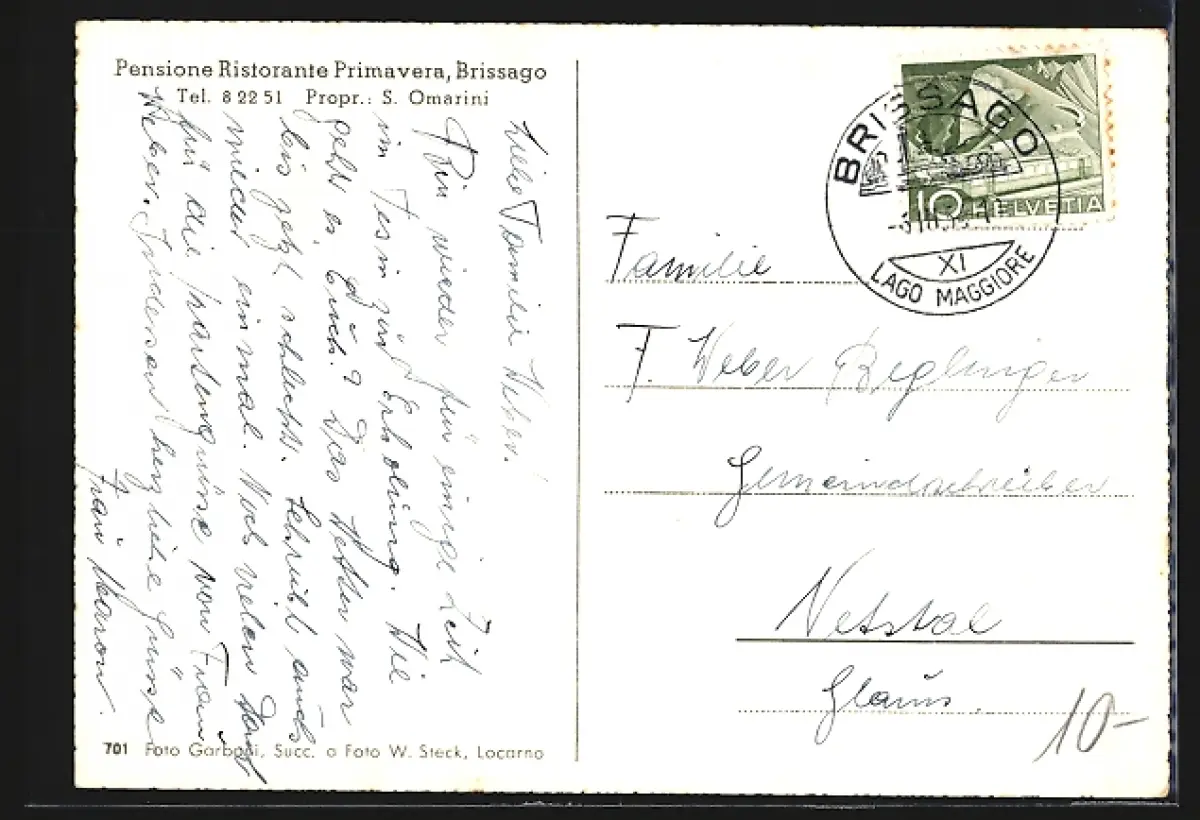 Pensione Ristorante Primavera, Brissago
Tel. 8 22 51 Propr.: S. Omarini
Liebe Familie Weber!
Bin wieder für einige Zeit
im Tessin zur Erholung. Wie
geht es Euch? Das Wetter war
bis jetzt schlecht. Schreibt auch
wieder einmal. Noch vielen Dank
für die von Frau
Weber. herzliche Grüsse
Frau
701 Foto Garbani, Succ. a Foto W. Steck, Locarno
BRISSAGO
XI
LAGO MAGGIORE
10 HELVETIA
Familie
F. Weber Beglinger
Gemeindschreiber
Netstal
Glarus.
10-